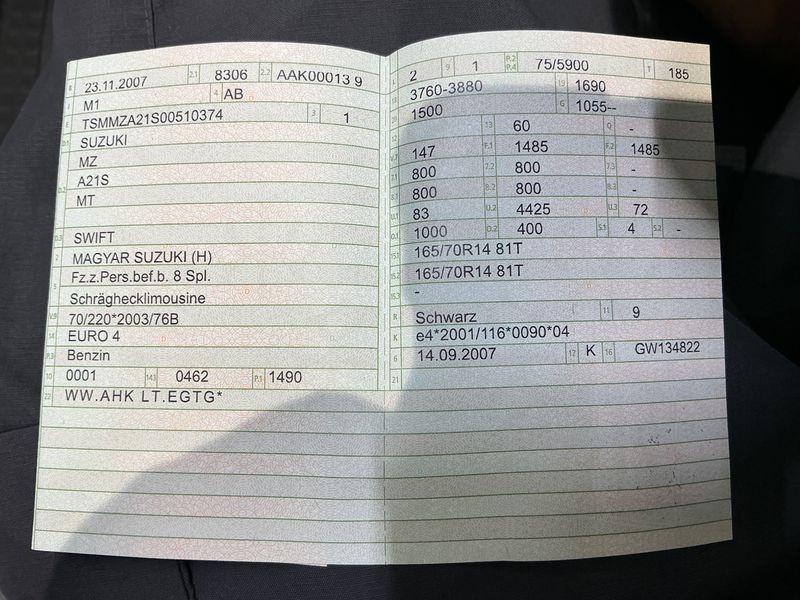 B 23.11.2007 2.1 8306 2.2 AAK00013 9
J M1 4 AB
E TSMMZA21S00510374 3 1
D.1 SUZUKI
MZ
D.2 A21S
MT
D.3 SWIFT
2 MAGYAR SUZUKI (H)
5 Fz.z.Pers.bef.b. 8 Spl.
Schräghecklimousine
V.9 70/220*2003/76B
14 EURO 4
P.3 Benzin
10 0001 14.1 0462 P.1 1490
22 WW.AHK LT.EGTG*
L 2 9 1 P.2 P.4 75/5900 T 185
18 3760-3880 19 1690
20 1500 G 1055--
12 13 60 Q -
V.7 147 F.1 1485 F.2 1485
7.1 800 7.2 800 7.3 -
8.1 800 8.2 800 8.3 -
U.1 83 U.2 4425 U.3 72
O.1 1000 O.2 400 S.1 4 S.2 -
15.1 165/70R14 81T
15.2 165/70R14 81T
15.3 -
R Schwarz 11 9
K e4*2001/116*0090*04
6 14.09.2007 17 K 16 GW134822
21